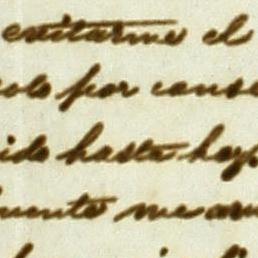 evitarme el
solo por conse
ido hasta hoy
mente me am